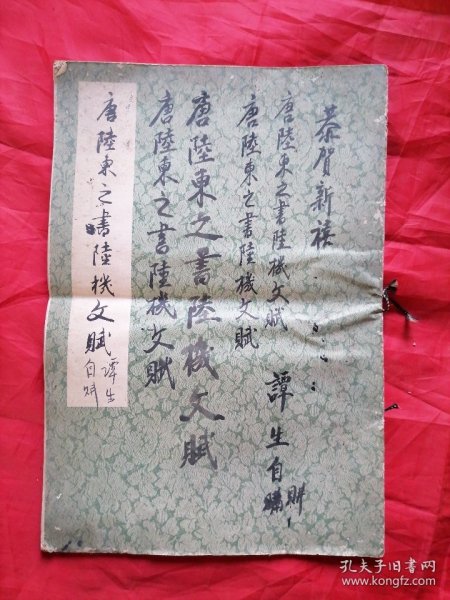 恭賀新禧
唐陸東之書陸機文賦
譚生自購
唐陸東之書陸機文賦
唐陸東之書陸機文賦
唐陸東之書陸機文賦
唐陸東之書陸機文賦
譚生
自
孔夫子旧书网
www.kongfz.com